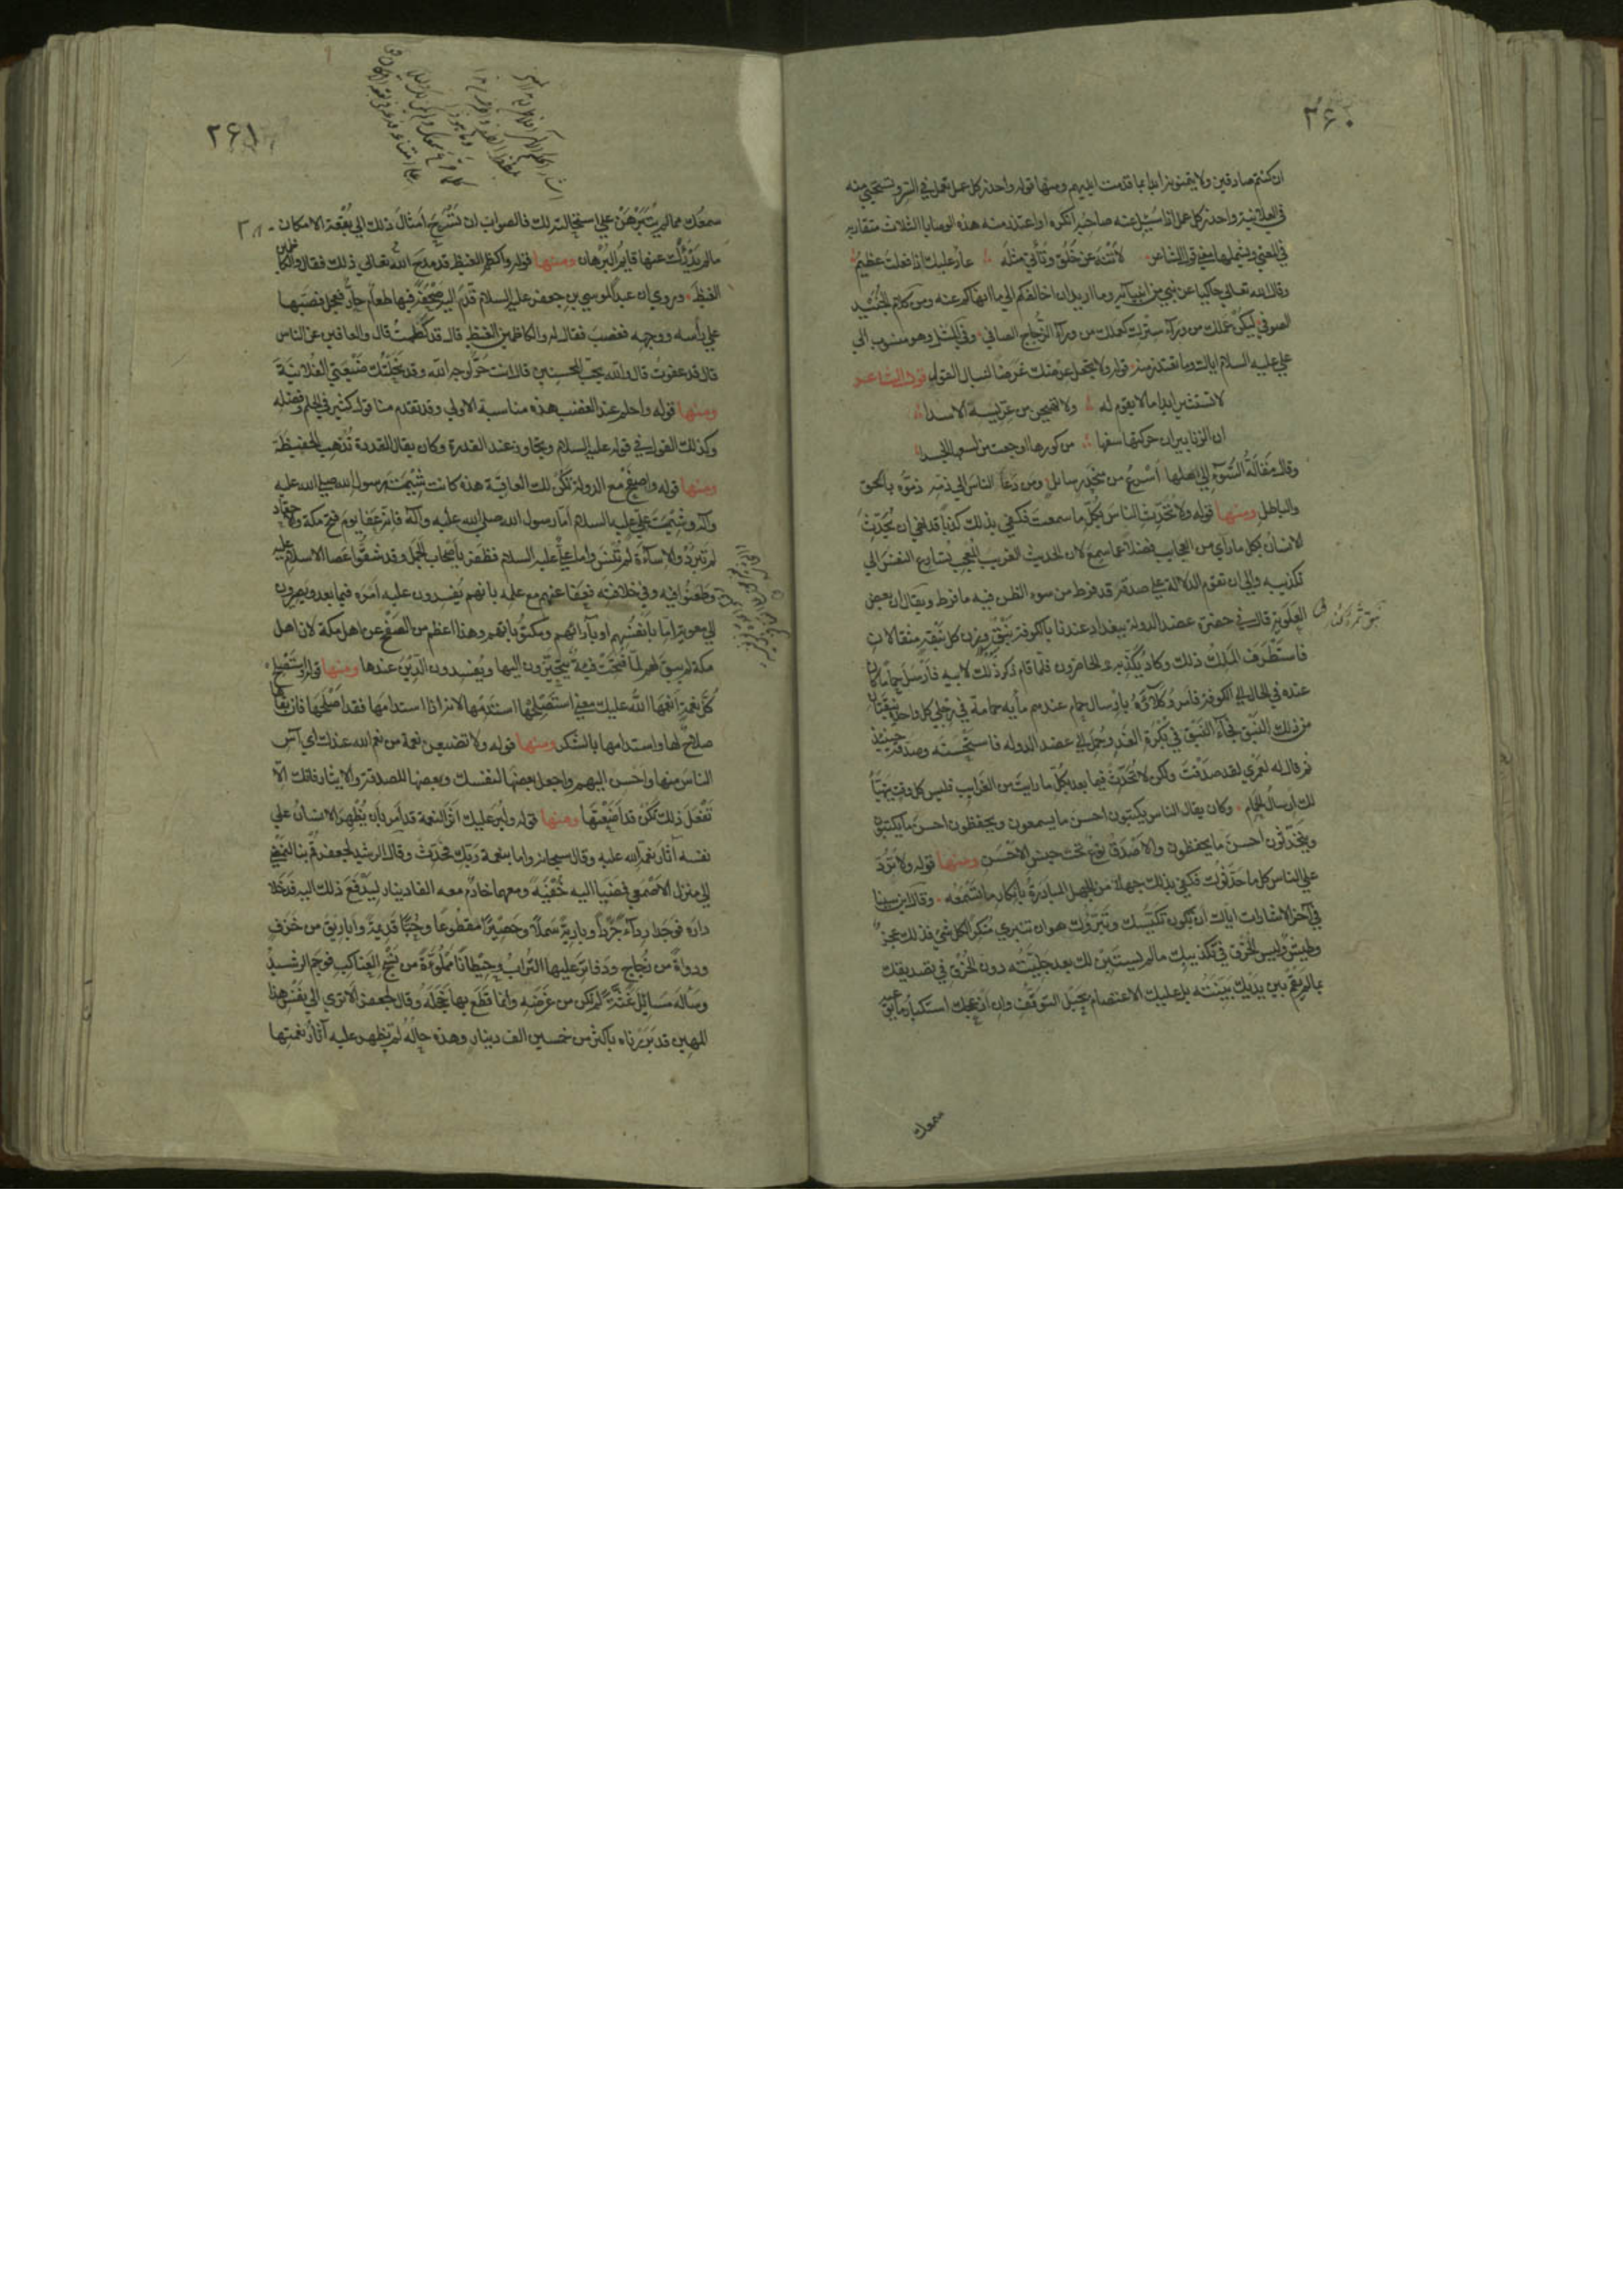 ٢٦٠
ان كنتم صادقين ولا يتمنونه ابدا بما قدمت ايديهم ومنها قوله واحذر كل عمل يعمل في السر ويستحيي منه
في العلانية واحذر كل عمل اذا سئل عنه صاحبه انكره او اعتذر منه هذه الوصايا الثلاث متقاربة
في المعنى ويشملها معنى قول الشاعر لا تنه عن خلق وتأتي مثله عار عليك اذا فعلت عظيم
وقال الله تعالى حاكيا عن نبي من انبيائه وما اريد ان اخالفكم الى ما انهاكم عنه ومن كلام الجنيد
الصوفي ليكن عملك من وراء سترك كعملك من وراء الزجاج الصافي وفي المثل وهو منسوب الى
علي عليه السلام اياك وما يعتذر منه قوله ولا تجعل عرضك غرضا لنبال القول قول الشاعر
لا تستثر ابدا ما لا تقوم له ولا تهيجن من عريسة الاسدا
ان الزنابير ان حركتها سفها من كورها اوجعت من لسعها الجسدا
وقال مقالة السوء الى اهلها اسرع من منحدر سايل ومن دعا الناس الى ذمه ذموه بالحق
والباطل ومنها قوله ولا تحدث الناس بكل ما سمعت فكفى بذلك كذبا قد نهي ان يحدث
الانسان بكل ما رأى من العجايب فضلا عما سمع لان الحديث الغريب المعجب تسارع النفس الى
تكذيبه والى ان تقوم الدلالة على صدقه قد فرط من سوء الظن فيه ما فرط ويقال ان بعض
العلوية قال في حضرة عضد الدولة ببغداد عندنا بالكوفة نبق وزن كل نبقة مثقالان
فاستطرف الملك ذلك وكاد يكذبه الحاضرون فلما قام ذكر ذلك لابيه فارسل حماما كان
عنده في الحال الى الكوفة فامر وكلاؤه بارسال حمام عندهم مأية حمامة في رجلي كل واحدة نبقتان
من ذلك النبق فجاء النبق في بكرة الغد وحمل الى عضد الدولة فاستحسنه وصدقه حينئذ
ثم قال له لعمري لقد صدقت ولكن لا تحدث فيما بعد بكل ما رايت من الغرايب فليس كل وقت يتهيأ
لك ارسال الحمام وكان يقال الناس يكتبون احسن ما يسمعون ويحفظون احسن ما يكتبون
ويتحدثون احسن ما يحفظون والاصدق نوع تحت جنس الاحسن ومنها قوله ولا ترد
على الناس كل ما حدثوك فكفى بذلك جهلا من الجهل المبادرة بانكار ما تسمعه وقال ابن سينا
في آخر الاشارات اياك ان يكون تكيسك وتبرزك هو ان تنبري منكرا لكل شئ فذلك عجز
وطيش وليس الخرق في تكذيبك ما لم يستبن لك بعد جليته دون الخرق في تصديقك
بما لم تقم بين يديك بينته بل عليك الاعتصام بحبل التوقف وان ازعجك استنكار ما
سمعك
٢٦١
سمعك مما لم يبرهن على استحالته لك فالصواب ان تسرح امثال ذلك الى بقعة الامكان
ما لم يذدك عنها قايم البرهان ومنها قوله واكظم الغيظ قد مدح الله تعالى ذلك فقال والكاظمين
الغيظ وروي ان عبدا لموسى بن جعفر عليه السلام قدم اليه صحفة فيها طعام حار فعجل فصبها
على رأسه ووجهه فغضب فقال له والكاظمين الغيظ قال قد كظمت قال والعافين عن الناس
قال قد عفوت قال والله يحب المحسنين قال انت حر لوجه الله وقد نحلتك ضيعتي الفلانية
ومنها قوله واحلم عند الغضب هذه مناسبة الاولى وقد تقدم منا قول كثير في الحلم وفضله
وكذلك القول في قوله عليه السلام وتجاوز عند القدرة وكان يقال القدرة تذهب الحفيظة
ومنها قوله واصفح مع الدولة تكن لك العاقبة هذه كانت شيمة رسول الله صلى الله عليه
وآله وشيمة علي عليه السلام اما رسول الله صلى الله عليه وآله فانه عفا يوم فتح مكة والاحقاد
لم تبرد والاساءة لم تنس واما علي عليه السلام فظفر باصحاب الجمل وقد شقوا عصا الاسلام عليه
وطعنوا فيه وفي خلافته فعفا عنهم مع علمه بانهم يفسدون عليه امره فيما بعد ويصيرون
الى معوية اما بانفسهم او بآرائهم ومكتوباتهم وهذا اعظم من الصفح عن اهل مكة لان اهل
مكة لم يبق لهم لما فتحت فئة يتحيزون اليها ويفسدون الدين عندها ومنها قوله واستصلح
كل نعمة انعمها الله عليك معنى استصلحها استدمها لانه اذا استدامها فقد اصلحها فان بقاءها
صلاح لها واستدامتها بالشكر ومنها قوله ولا تضيعن نعمة من نعم الله عندك اي آس
الناس منها واحسن اليهم واجعل بعضها لنفسك وبعضها للصدقة والايثار فانك الا
تفعل ذلك تكن قد اضعتها ومنها قوله ولير عليك اثر النعمة قد امر بان يظهر الانسان على
نفسه آثار نعمة الله عليه وقال سبحانه واما بنعمة ربك فحدث وقال الرشيد لجعفر قم بنا لنمضي
الى منزل الاصمعي فمضيا اليه خفية ومعهما خادم معه الف دينار ليدفع ذلك اليه فدخلا
داره فوجدا رداء جردا وبارية سملة وحصيرا مقطوعا وخباء قديمة واباريق من خزف
ودواة من زجاج ودفاتر عليها التراب وحيطانا مملوءة من نسج العناكب فوجم الرشيد
وسأله مسايل غثة لم تكن من غرضه وانما قطع بها خجله وقال لجعفر الا ترى الى نفس هذا
المهين قد بررناه باكثر من خمسين الف دينار وهذه حاله لم تظهر عليه آثار نعمتها